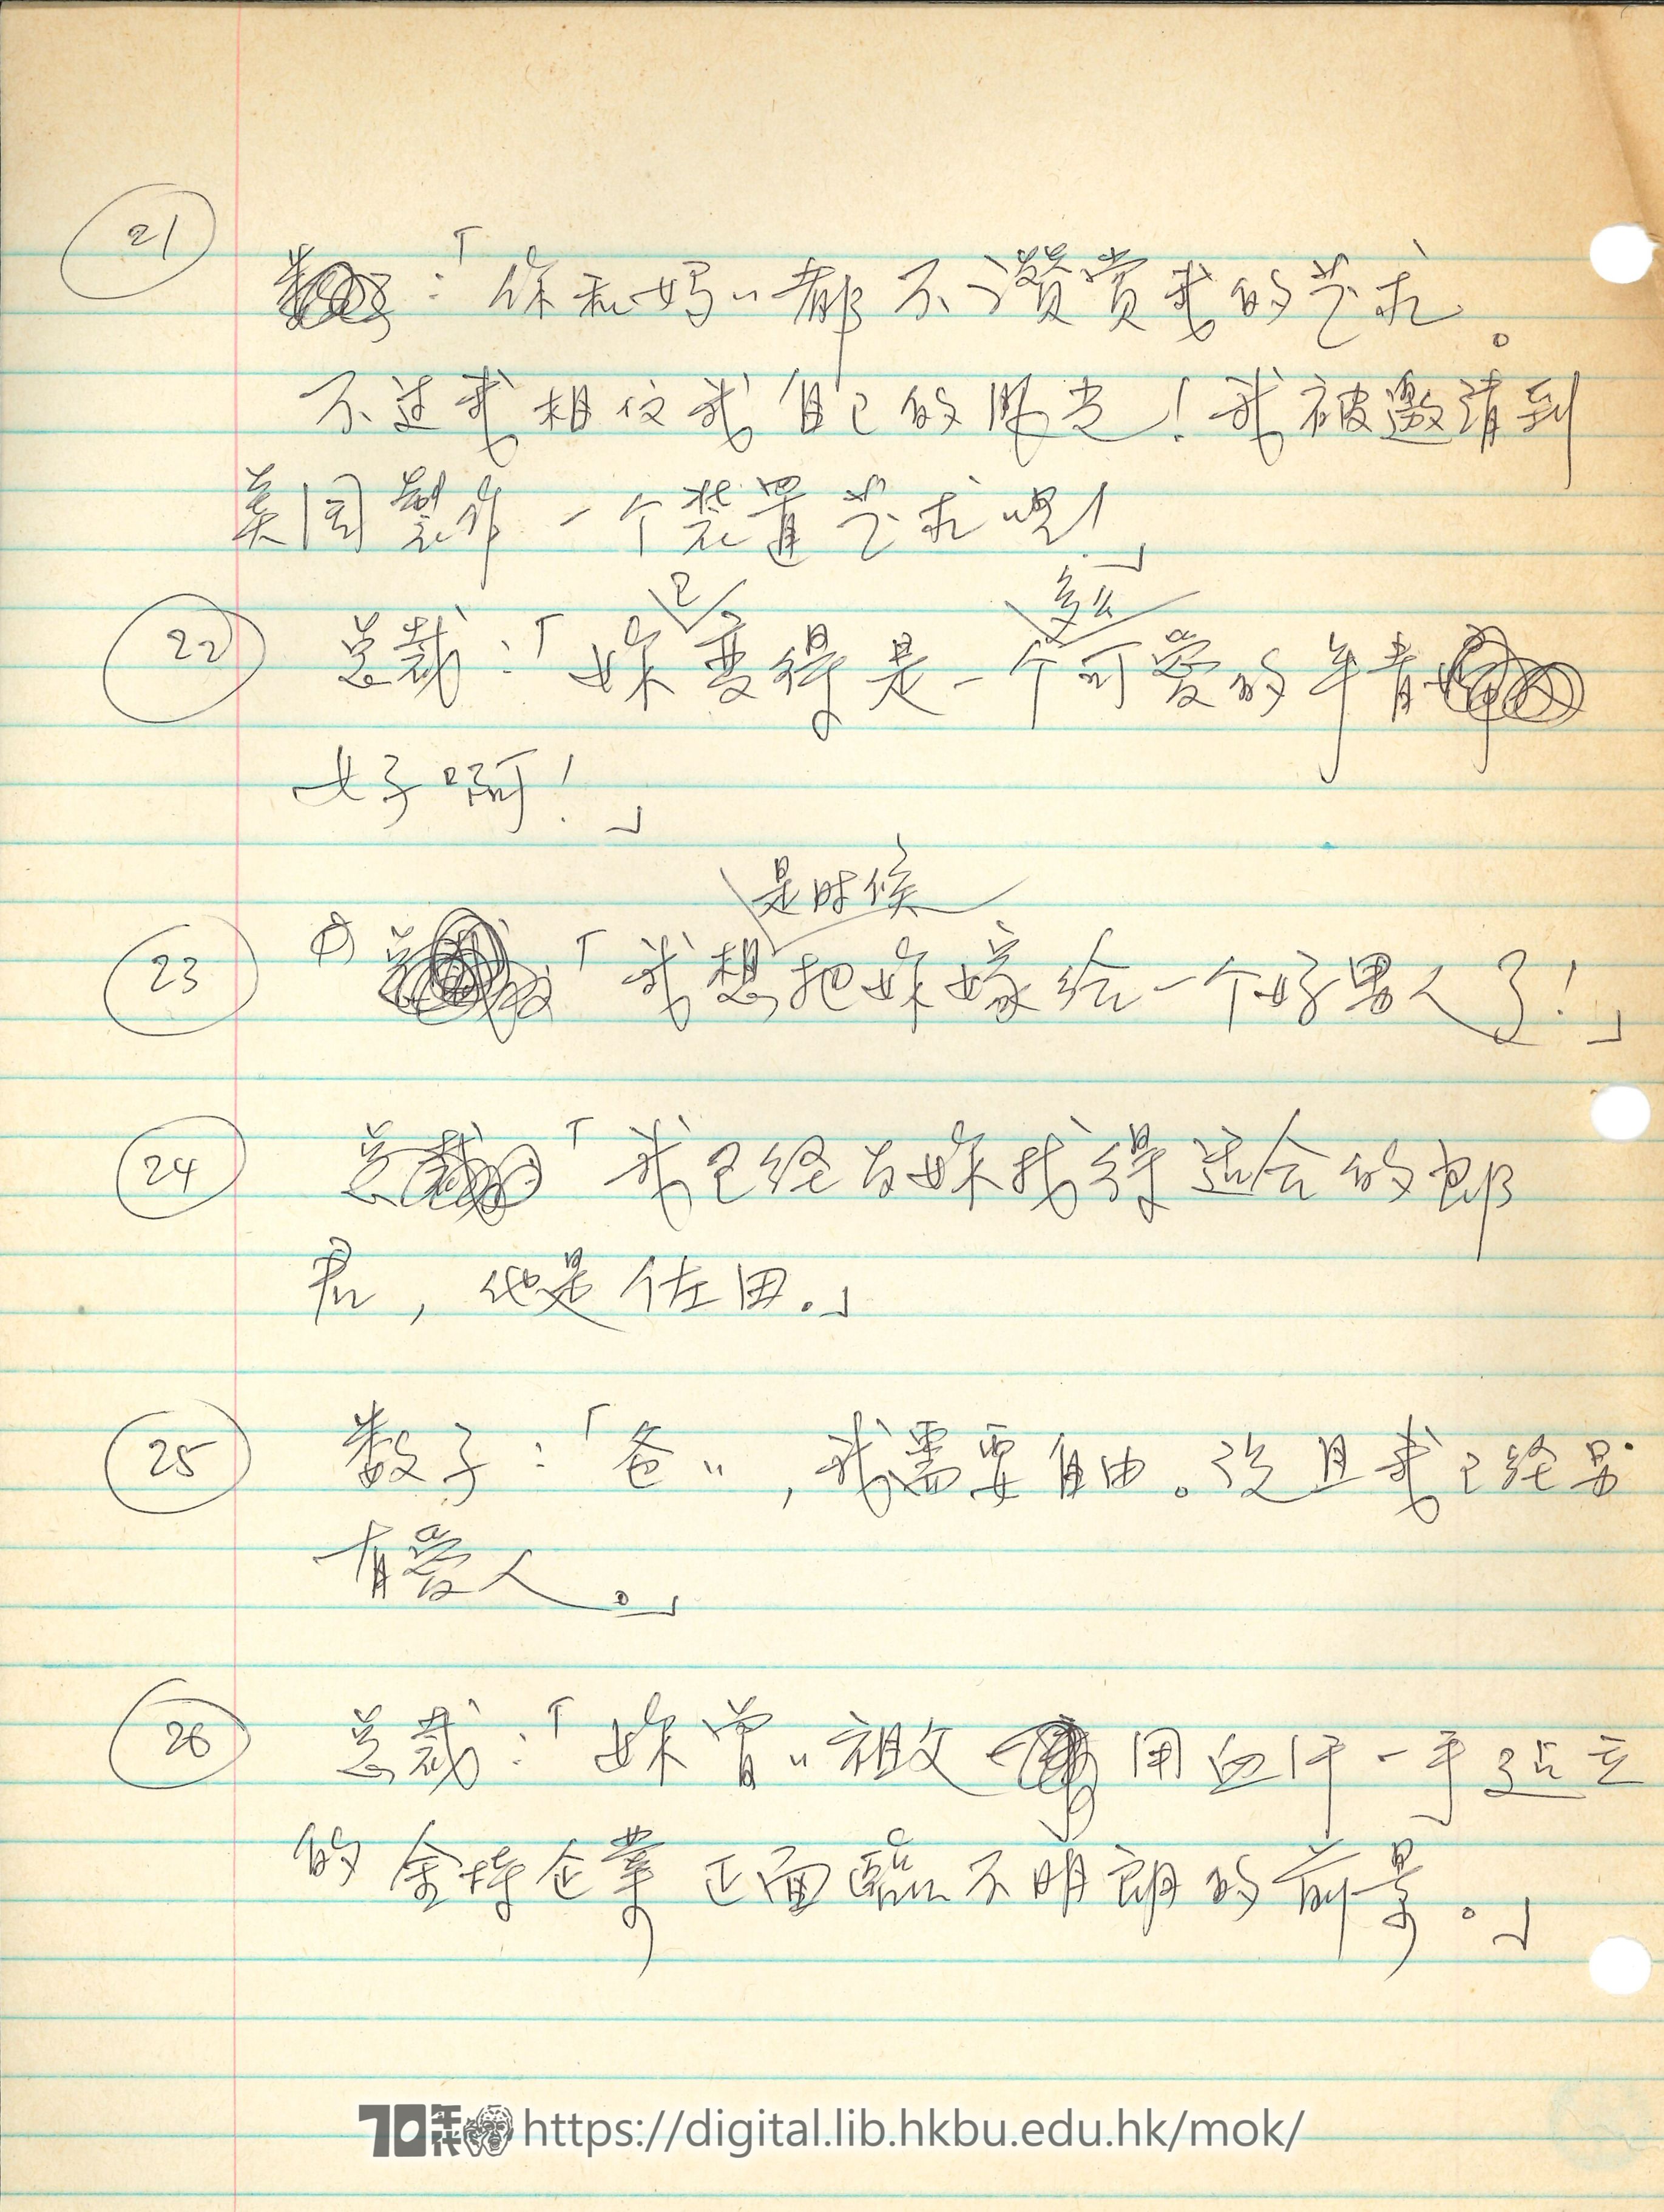 21
：「你和妈〃都不讚赏我的艺术。
不过我相信我自己的眼光！我被邀请到
美国製作一个装置艺术呢！」
已 多么
22 总裁：「妳变得是一个可爱的年青
女子啊！」
是时候
23 「我想把妳嫁给一个好男人了！」
24 总裁「我已经为妳找得适合的郎
君，他是佐田。」
25 数子：「爸〃，我需要自由。况且我已经另
有爱人。」
26 总裁：「妳曾〃祖父用血汗一手建立
的金持企業正面臨不明朗的前景。」
70年代 https://digital.lib.hkbu.edu.hk/mok/